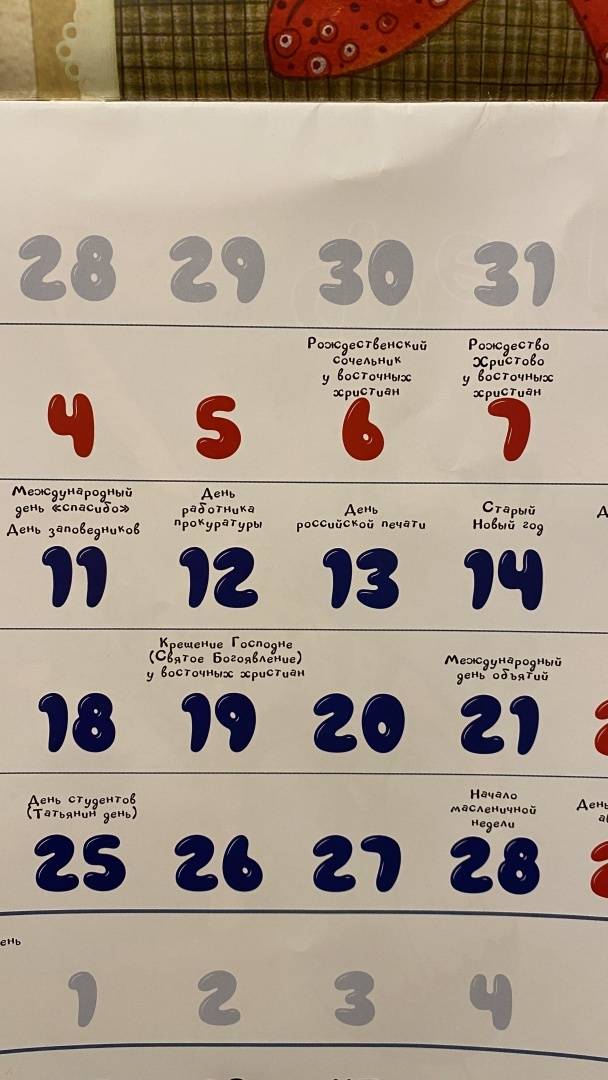 28 29 30 31
Рождественский
сочельник
у восточных
христиан
Рождество
Христово
у восточных
христиан
4 5 6 7
Международный
день «спасибо»
День заповедников
День
работника
прокуратуры
День
российской печати
Старый
Новый год
Д
11 12 13 14
Крещение Господне
(Святое Богоявление)
у восточных христиан
Международный
день объятий
18 19 20 21 2
День студентов
(Татьянин день)
Начало
масленичной
недели
День
ав
25 26 27 28 2
ень
1 2 3 4